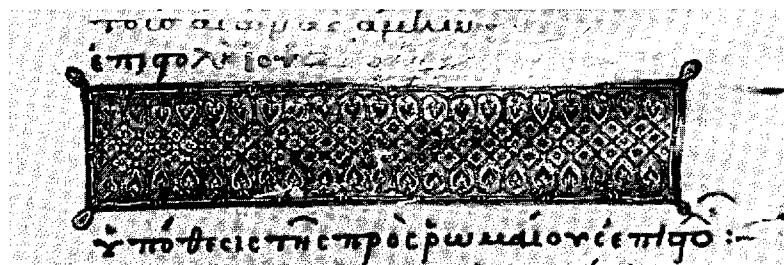 τοὺς αἰῶνας ἀμήν
ἐπιϛολὴ
ὑπόθεσις τῆς πρὸς ῥωμαίους ἐπιϛο:-